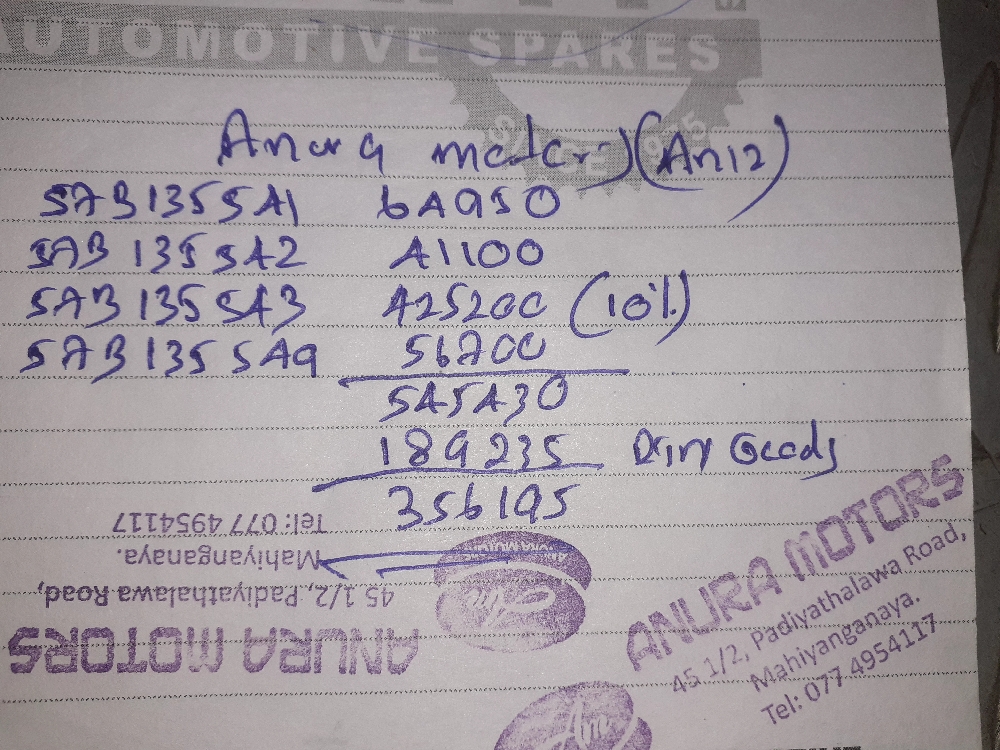 AUTOMOTIVE SPARES
Anura motors (An12)
SAB135541 64950
SAB 135542 41100
SAB 135543 425200 (10%)
SAB 135549 56700
545430
189235 Goods
356195
ANURA MOTORS
45 1/2, Padiyathalawa Road,
Mahiyanganaya.
Tel: 077 4954117
ANURA MOTORS
45 1/2, Padiyathalawa Road,
Mahiyanganaya.
Tel: 077 4954117